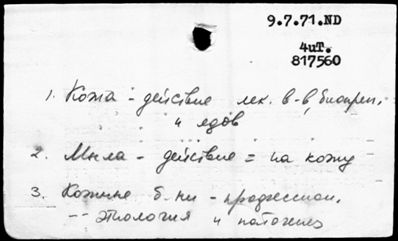 9.7.71.ND
4иT.
817560
1. Кожа - действие лек. в-в, биопреп.
и ядов
2. Мыла - действие = на кожу
3. Кожные б-ни - профессион.
-- этиология и патогенез